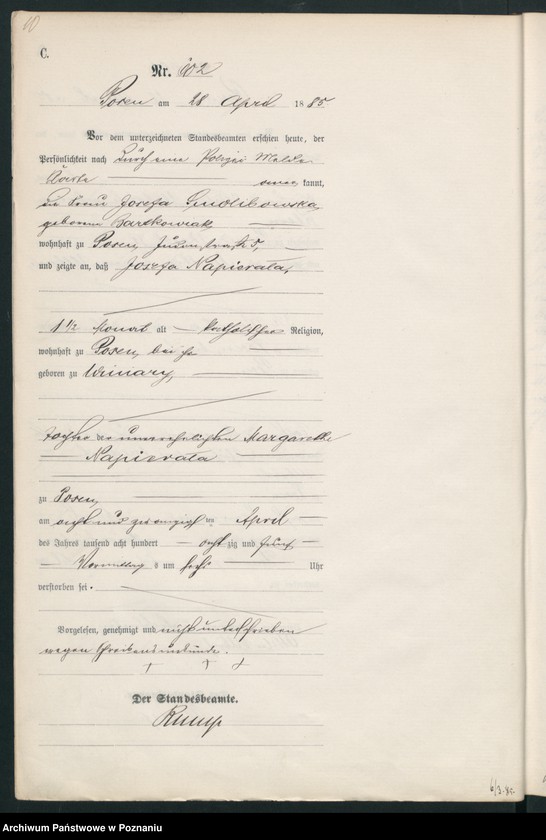 C.
Nr. 602
Posen am 28 April 1885
Vor dem unterzeichneten Standesbeamten erschien heute, der
Persönlichkeit nach durch eine Polizei Melde-
karte kannt,
die Frau Josefa
geborene Bartkowiak,
wohnhaft zu Posen, Judenstraße 5,
und zeigte an, daß Josefa Napierala,
1 1/2 Monat alt katholischer Religion,
wohnhaft zu Posen, bei ihr
geboren zu Winiary,
Tochter der unverehelichten Margarethe
Napierala
zu Posen,
am acht und zwanzigsten April
des Jahres tausend acht hundert achtzig und fünf,
Vormittags um sechs Uhr
verstorben sei.
Vorgelesen, genehmigt und nicht unterschrieben
wegen Schreibensunkunde.
+ + +
Der Standesbeamte.
Archiwum Państwowe w Poznaniu